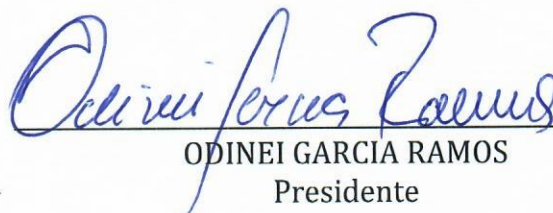 Odinei Garcia Ramos
ODINEI GARCIA RAMOS
Presidente